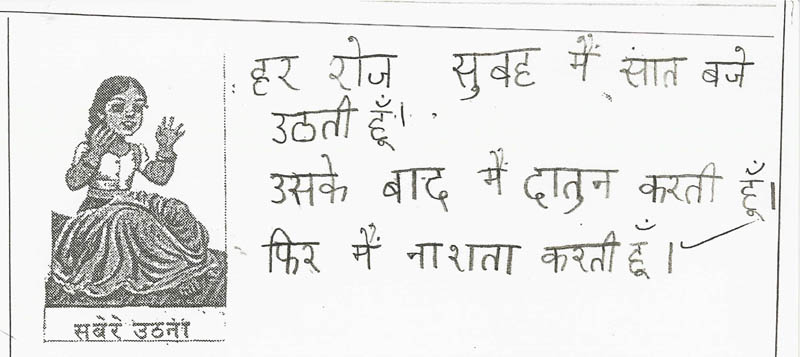 हर रोज सुबह मैं सात बजे
उठती हूँ।
उसके बाद मैं दातुन करती हूँ।
फिर मैं नाशता करती हूँ।
सबेरे उठना